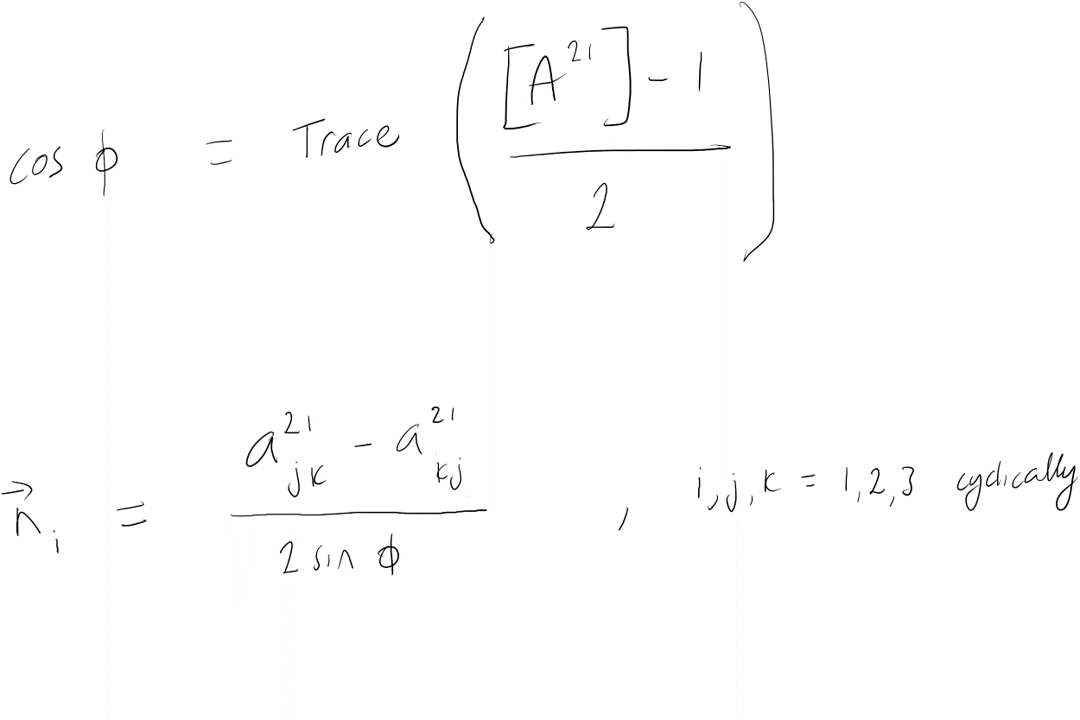 cos ϕ = Trace ( ([A^{21}] - 1) / 2 )
\vec{n}_i = (a^{21}_{jk} - a^{21}_{kj}) / (2 sin ϕ) , i, j, k = 1, 2, 3 cyclically